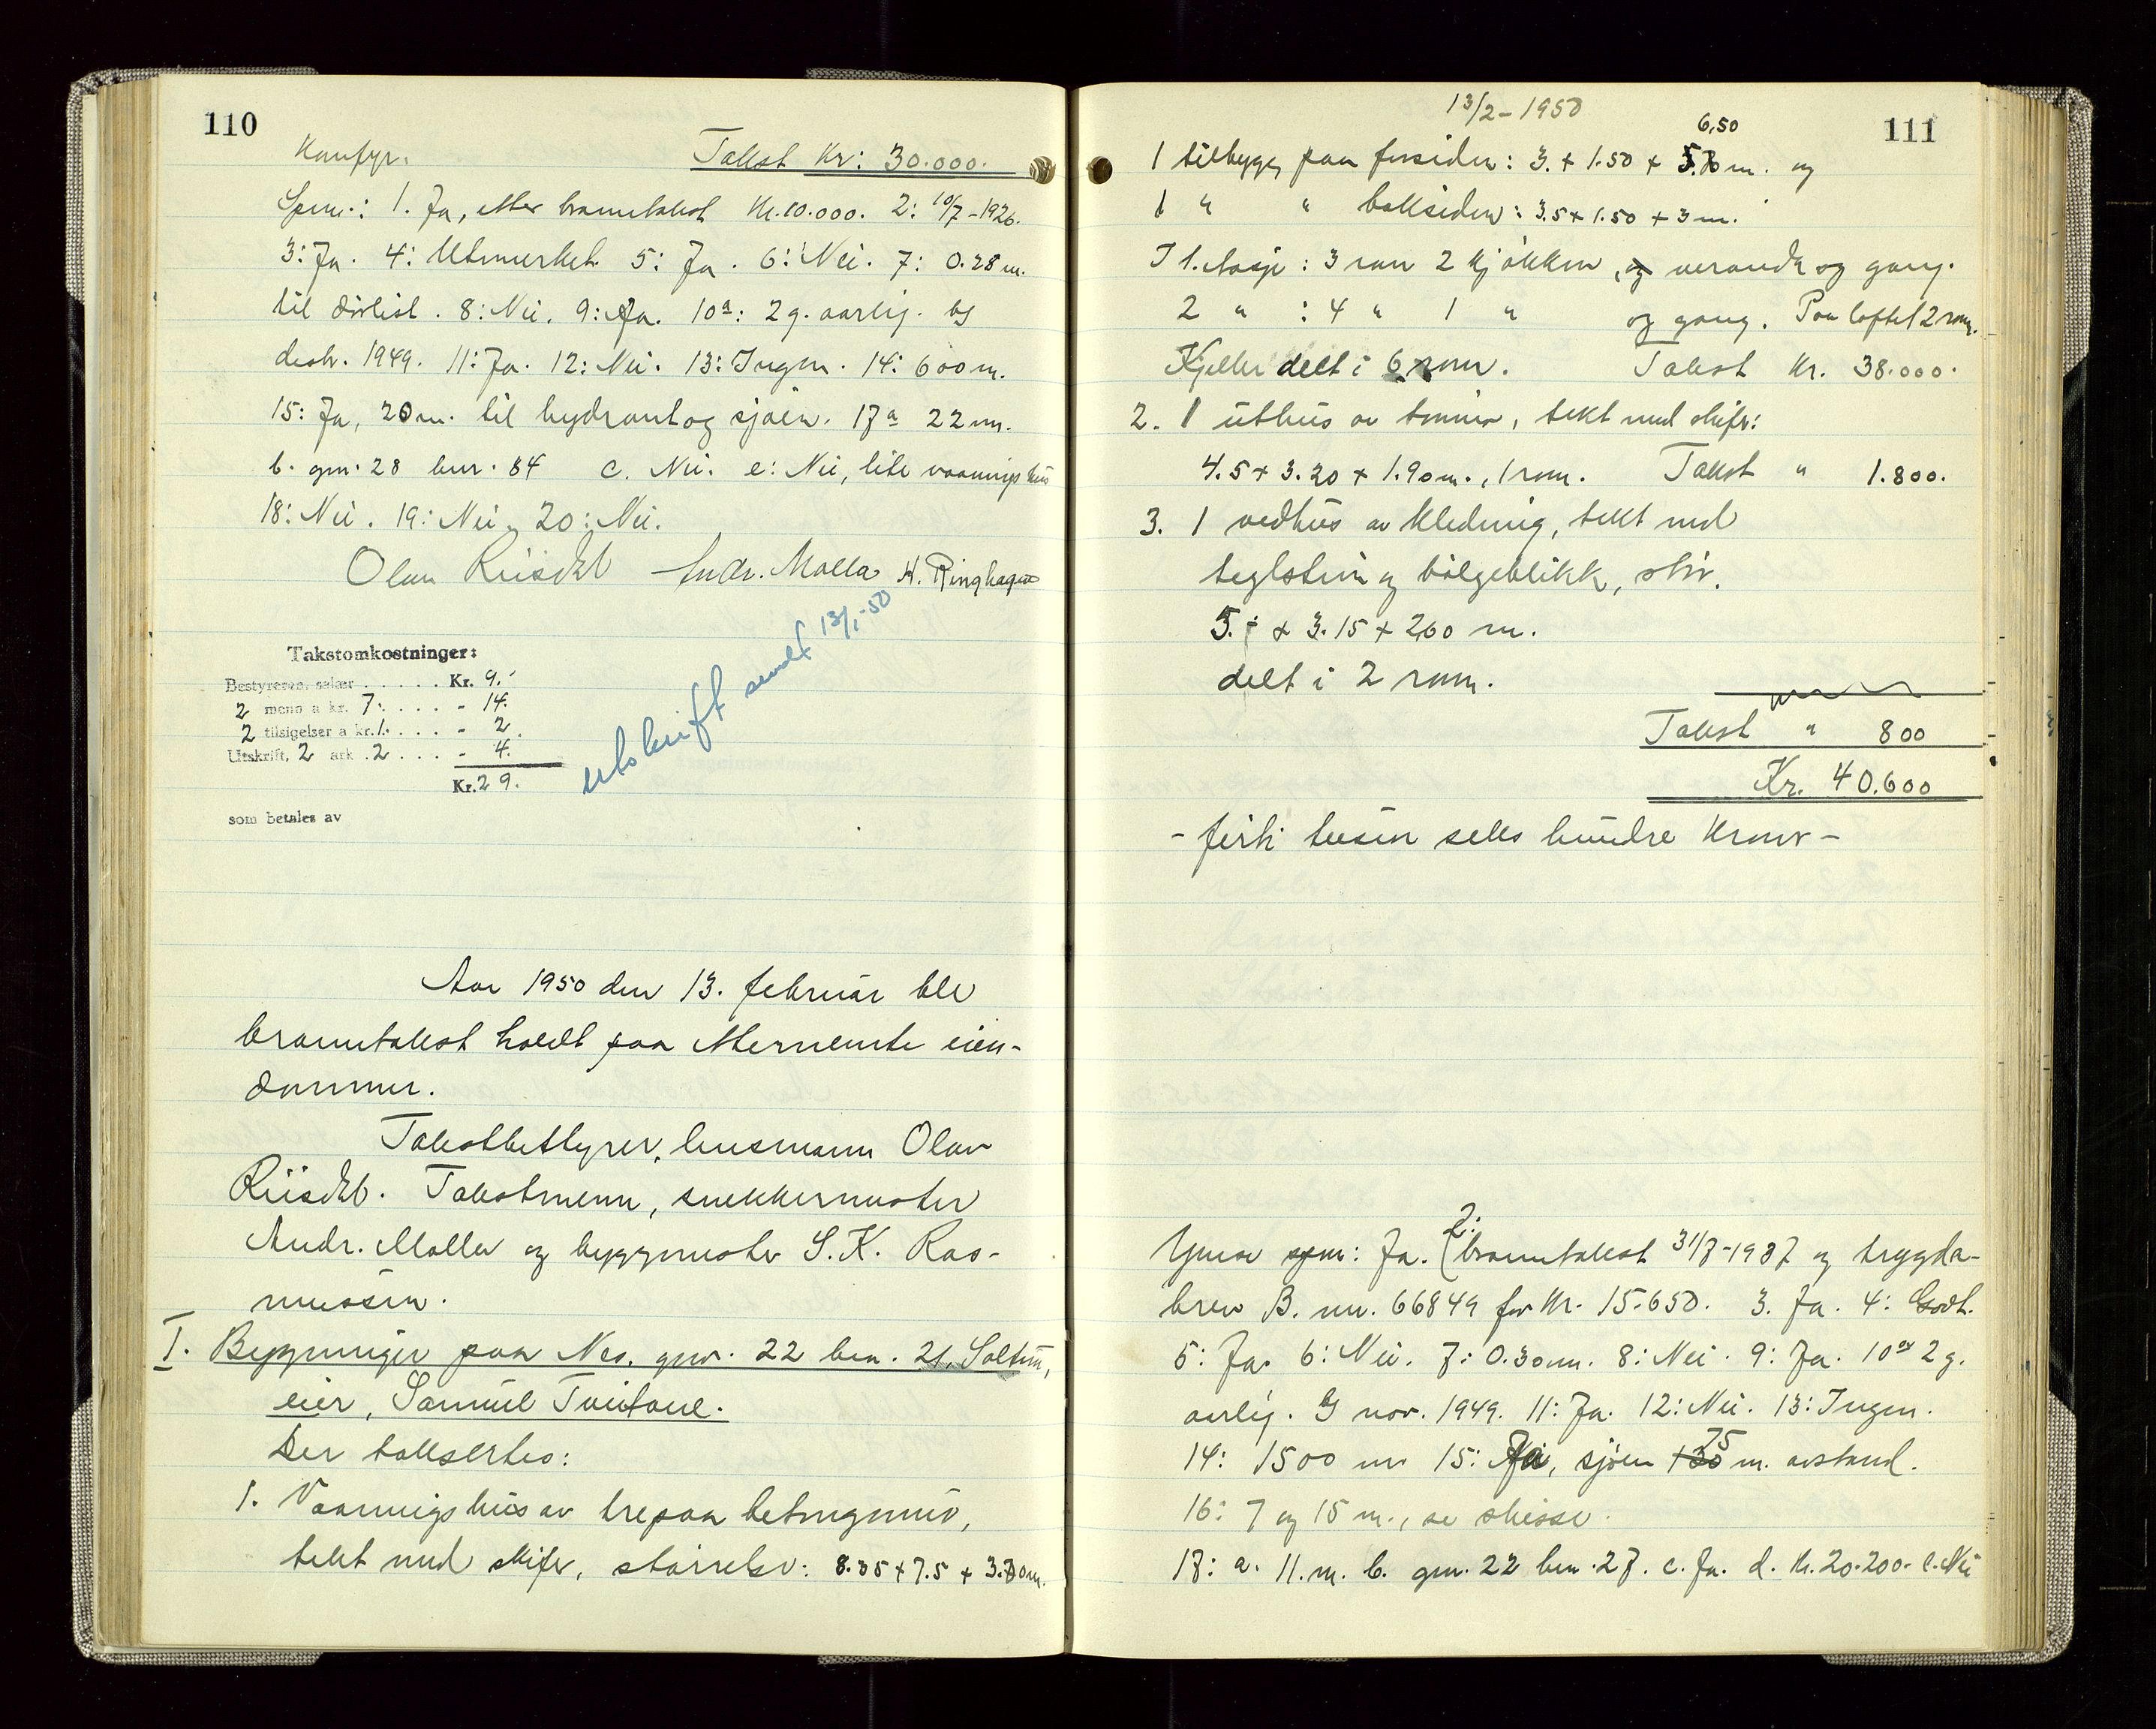 110
Komfyr. Takst Kr: 30.000.
Spm.: 1. Ja, etter branntakst Kr. 10.000. 2: 10/7-1926.
3: Ja. 4: Utmerket. 5: Ja. 6: Nei. 7: 0.28 m.
til dørlist. 8: Nei. 9: Ja. 10a: 2 g. aarlig. b)
desbr. 1949. 11: Ja. 12: Nei. 13: Ingen. 14: 600 m.
15: Ja, 20 m. til hydrant og sjøen. 17a 22 m.
b. gnr. 28 bnr. 84 c. Nei. e: Nei, lite vaanings hus
18: Nei. 19: Nei. 20: Nei.
Olav Andr. Molla H. Ringhagen
Takstomkostninger:
Bestyreren, salær ..... Kr. 9.-
2 menn a kr. 7. .... - 14.
2 tilsigelser a kr. 1. .... - 2.
Utskrift, 2 ark . 2 ... - 4.
Kr. 29.
som betales av
utskrift sendt 13/1-50
Aar 1950 den 13. februar ble
branntakst holdt paa etternemte eien-
dommer.
Takstbestyrer, lensmann Olav
Takstmenn, snekkermester
Andr. Molla og byggmester S. K. Ras-
mussen.
I. Bygninger paa Nes, gnr. 22 bnr. 21, Soltun,
eier, Samuel Tveitane.
Der taksertes:
1. Vaanings hus av tre paa betongmur,
tekt med skifer, størrelse: 8.35 + 7.5 + 3.70 m.
13/2-1950
111
6,50
1 tilbygg paa forsiden: 3. + 1.50 + m. og
1 " " baksiden: 3.5 + 1.50 + 3 m.
I 1. etasje: 3 rom 2 kjøkken, og veranda og gang.
2 " : 4 " 1 " og gang. Paa loftet 2 rom.
Kjeller delt i 6 rom. Takst Kr. 38.000.
2. 1 uthus av tømmer, tekt med skifer:
4.5 + 3.20 + 1.90 m., 1 rom. Takst " 1.800.
3. 1 vedhus av kledning, tekt med
teglstein og bølgeblikk, størr.
5.- + 3.15 + 2,60 m.
delt i 2 rom.
Takst " 800
Kr. 40.600
- førti tusen seks hundre kroner -
Ymse spm: Ja. (2: branntakst 31/7-1937 og trygda-
brev B. nr. 66849 for Kr. 15.650. 3. Ja. 4: Godt.
5: Ja. 6: Nei. 7: 0.30 m. 8: Nei. 9: Ja. 10a 2 g.
aarlig. nov. 1949. 11: Ja. 12: Nei. 13: Ingen.
75
14: 1500 m 15: Ja, sjøen 130 m. avstand.
16: 7 og 15 m., se skisse.
17: a. 11. m. b. gnr. 22 bnr. 27. c. Ja. d. Kr. 20.200. e. Nei